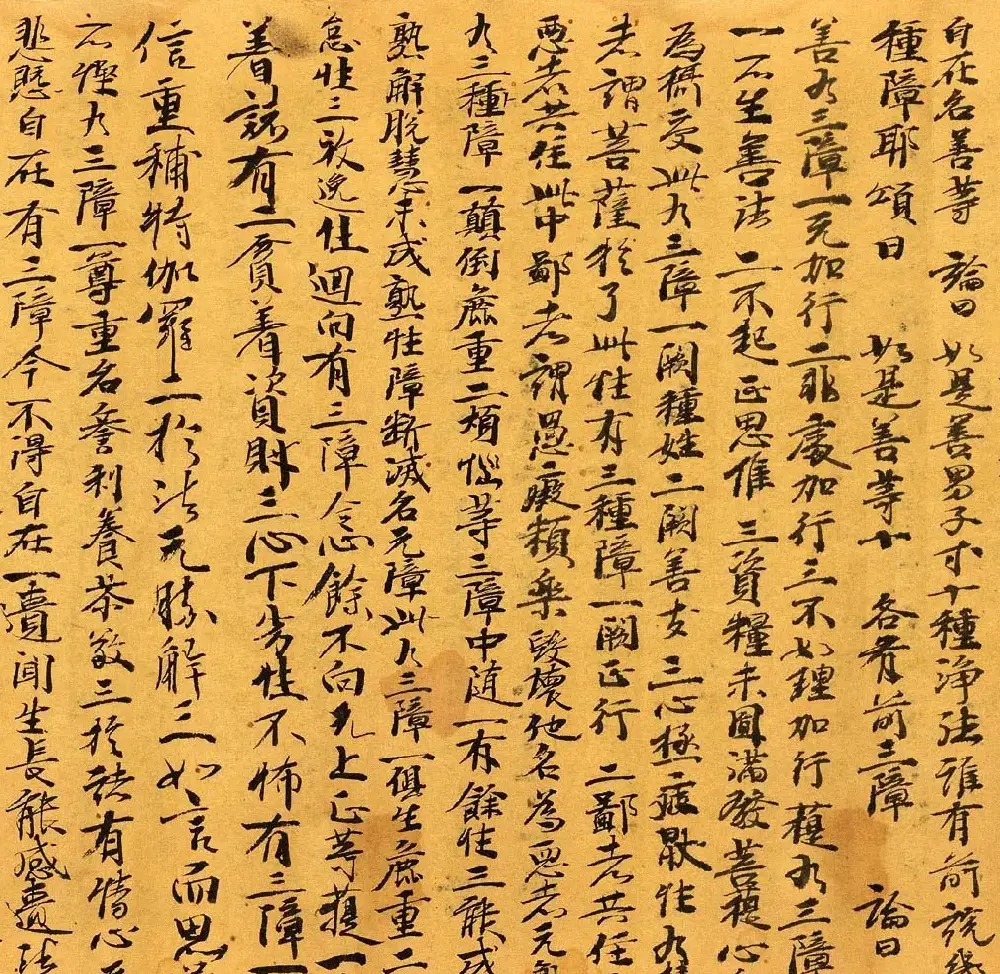 自在名善等 論曰 如是善男子才十種淨法誰有前說幾
種障耶頌曰 如是善等十 各有前三障 論曰
善有三障一无加行二非處加行三不如理加行菩提有三障
一不生善法二不起正思惟三資糧未圓滿發菩提心
為攝受此有三障一闕種姓二闕善友三心極疲猒性有
者謂菩薩於了此性有三種障一闕正行二鄙者共住
惡者共住此中鄙者謂愚癡類樂毀壞他名為惡者无
有三種障一顛倒麁重二煩惱等三障中随一有餘性三能成
熟解脫慧未成熟性障斷滅名无障此有三障一俱生麁重二
怠性三放逸性迴向有三障令心餘不向无上正等菩提一
著諸有二貪著資財三心下劣性不怖有三障一
信重補特伽羅二於法无勝解三如言而思
不慳有三障一尊重名譽利養恭敬三於諸有情心无
悲愍自在有三障令不得自在一匱聞生長能感匱法